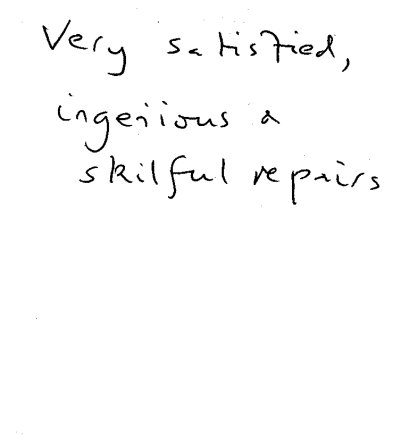 Very satisfied,
ingenious &
skilful repairs